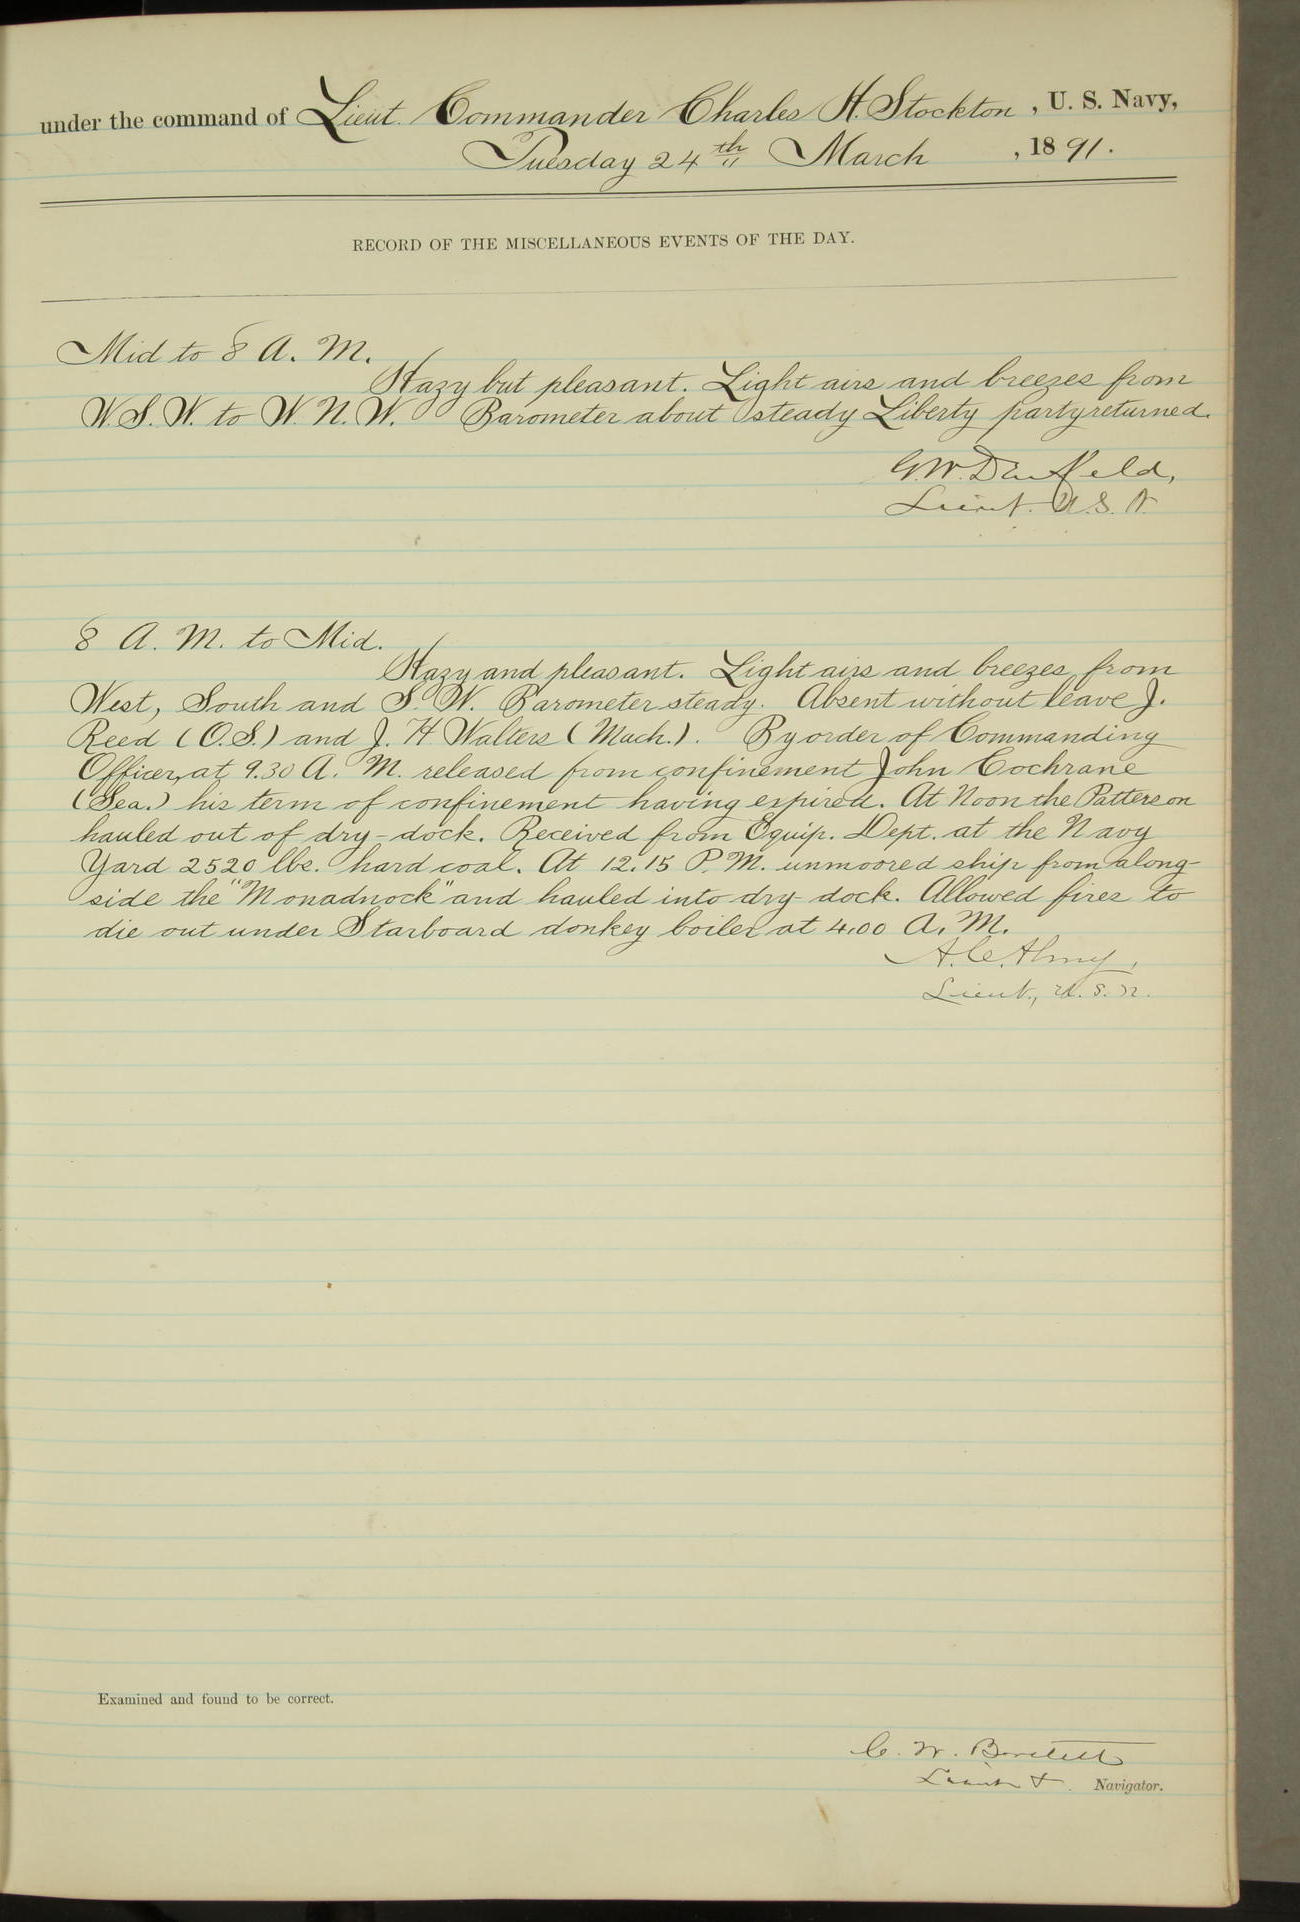 under the command of Lieut. Commander Charles H. Stockton, U. S. Navy,
Tuesday 24th March, 1891.
RECORD OF THE MISCELLANEOUS EVENTS OF THE DAY.
Mid to 8 A. M.
Hazy but pleasant. Light airs and breezes from
W.S.W. to W.N.W. Barometer about steady Liberty party returned.
G.W. Denfeld,
Lieut. U.S.N.
8 A. M. to Mid.
Hazy and pleasant. Light airs and breezes from
West, South and S.W. Barometer steady. Absent without leave J.
Reed (O.S.) and J. H Walters (Mach.). By order of Commanding
Officer, at 9.30 A. M. released from confinement John Cochrane
(Sea.) his term of confinement having expired. At Noon the Patterson
hauled out of dry-dock. Received from Equip. Dept. at the Navy
Yard 2520 lbs. hard coal. At 12.15 P.M. unmoored ship from along-
side the "Monadnock" and hauled into dry-dock. Allowed fires to
die out under Starboard donkey boiler at 4.00 A. M.
A.C. Almy,
Lieut., U.S.N.
Examined and found to be correct.
C. W. Bartlett
Lieut Navigator.